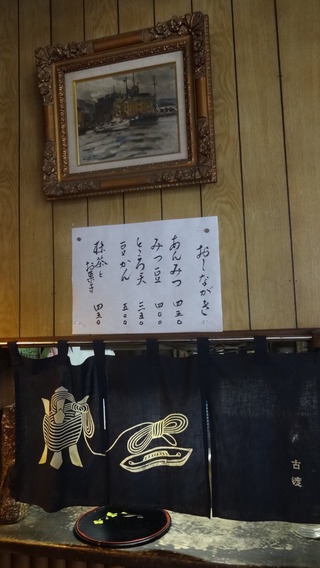 おしながき
あんみつ 四五〇
みつ豆 四〇〇
ところ天 三五〇
豆かん 五〇〇
抹茶と
お菓子 四五〇
古渡